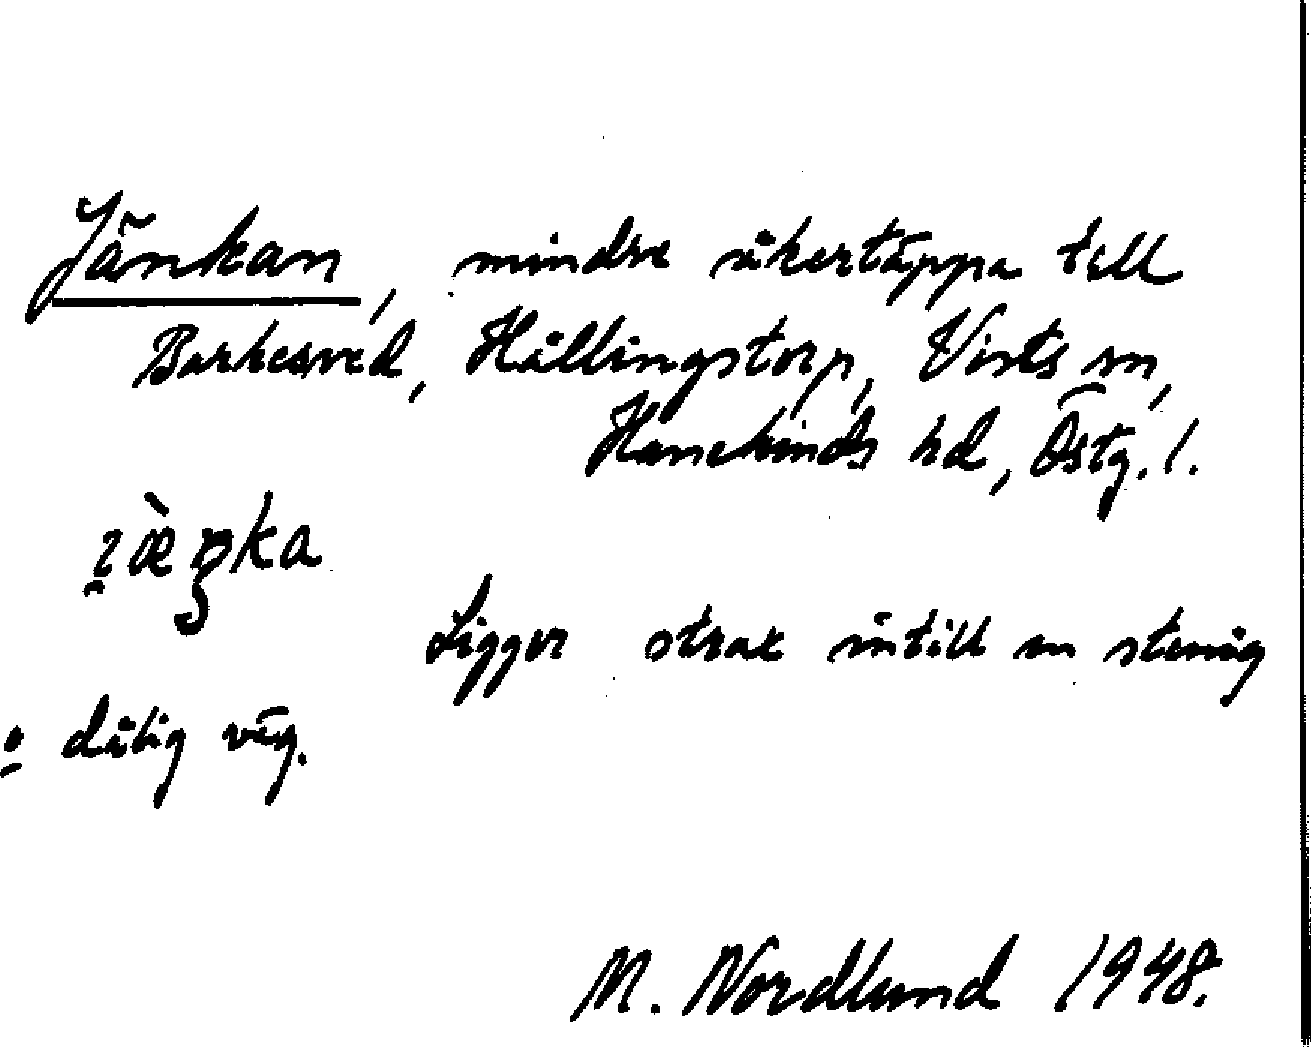 Jänkan, mindre åkertäppa till
Barkesved, Hållingstorp, Vists sn,
Hanekinds hd, Östg. l.
Ligger strax intill en stenig
o dålig väg.
M. Nordlund 1948.